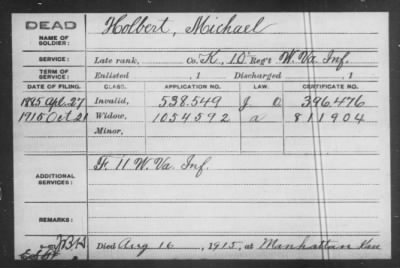 DEAD
NAME OF SOLDIER:
Holbert, Michael
SERVICE:
Late rank, Co. K, 10 Reg't W. Va. Inf.
TERM OF SERVICE:
Enlisted , 1 Discharged , 1
DATE OF FILING. CLASS. APPLICATION NO. LAW. CERTIFICATE NO.
1885 Apl. 27 Invalid, 538.549 J O 396.476
1915 Oct 21 Widow, 1054592 a 811904
Minor,
ADDITIONAL SERVICES:
F. 11 W. Va. Inf.
REMARKS:
Died Aug 16, 1915, at Manhattan Kan